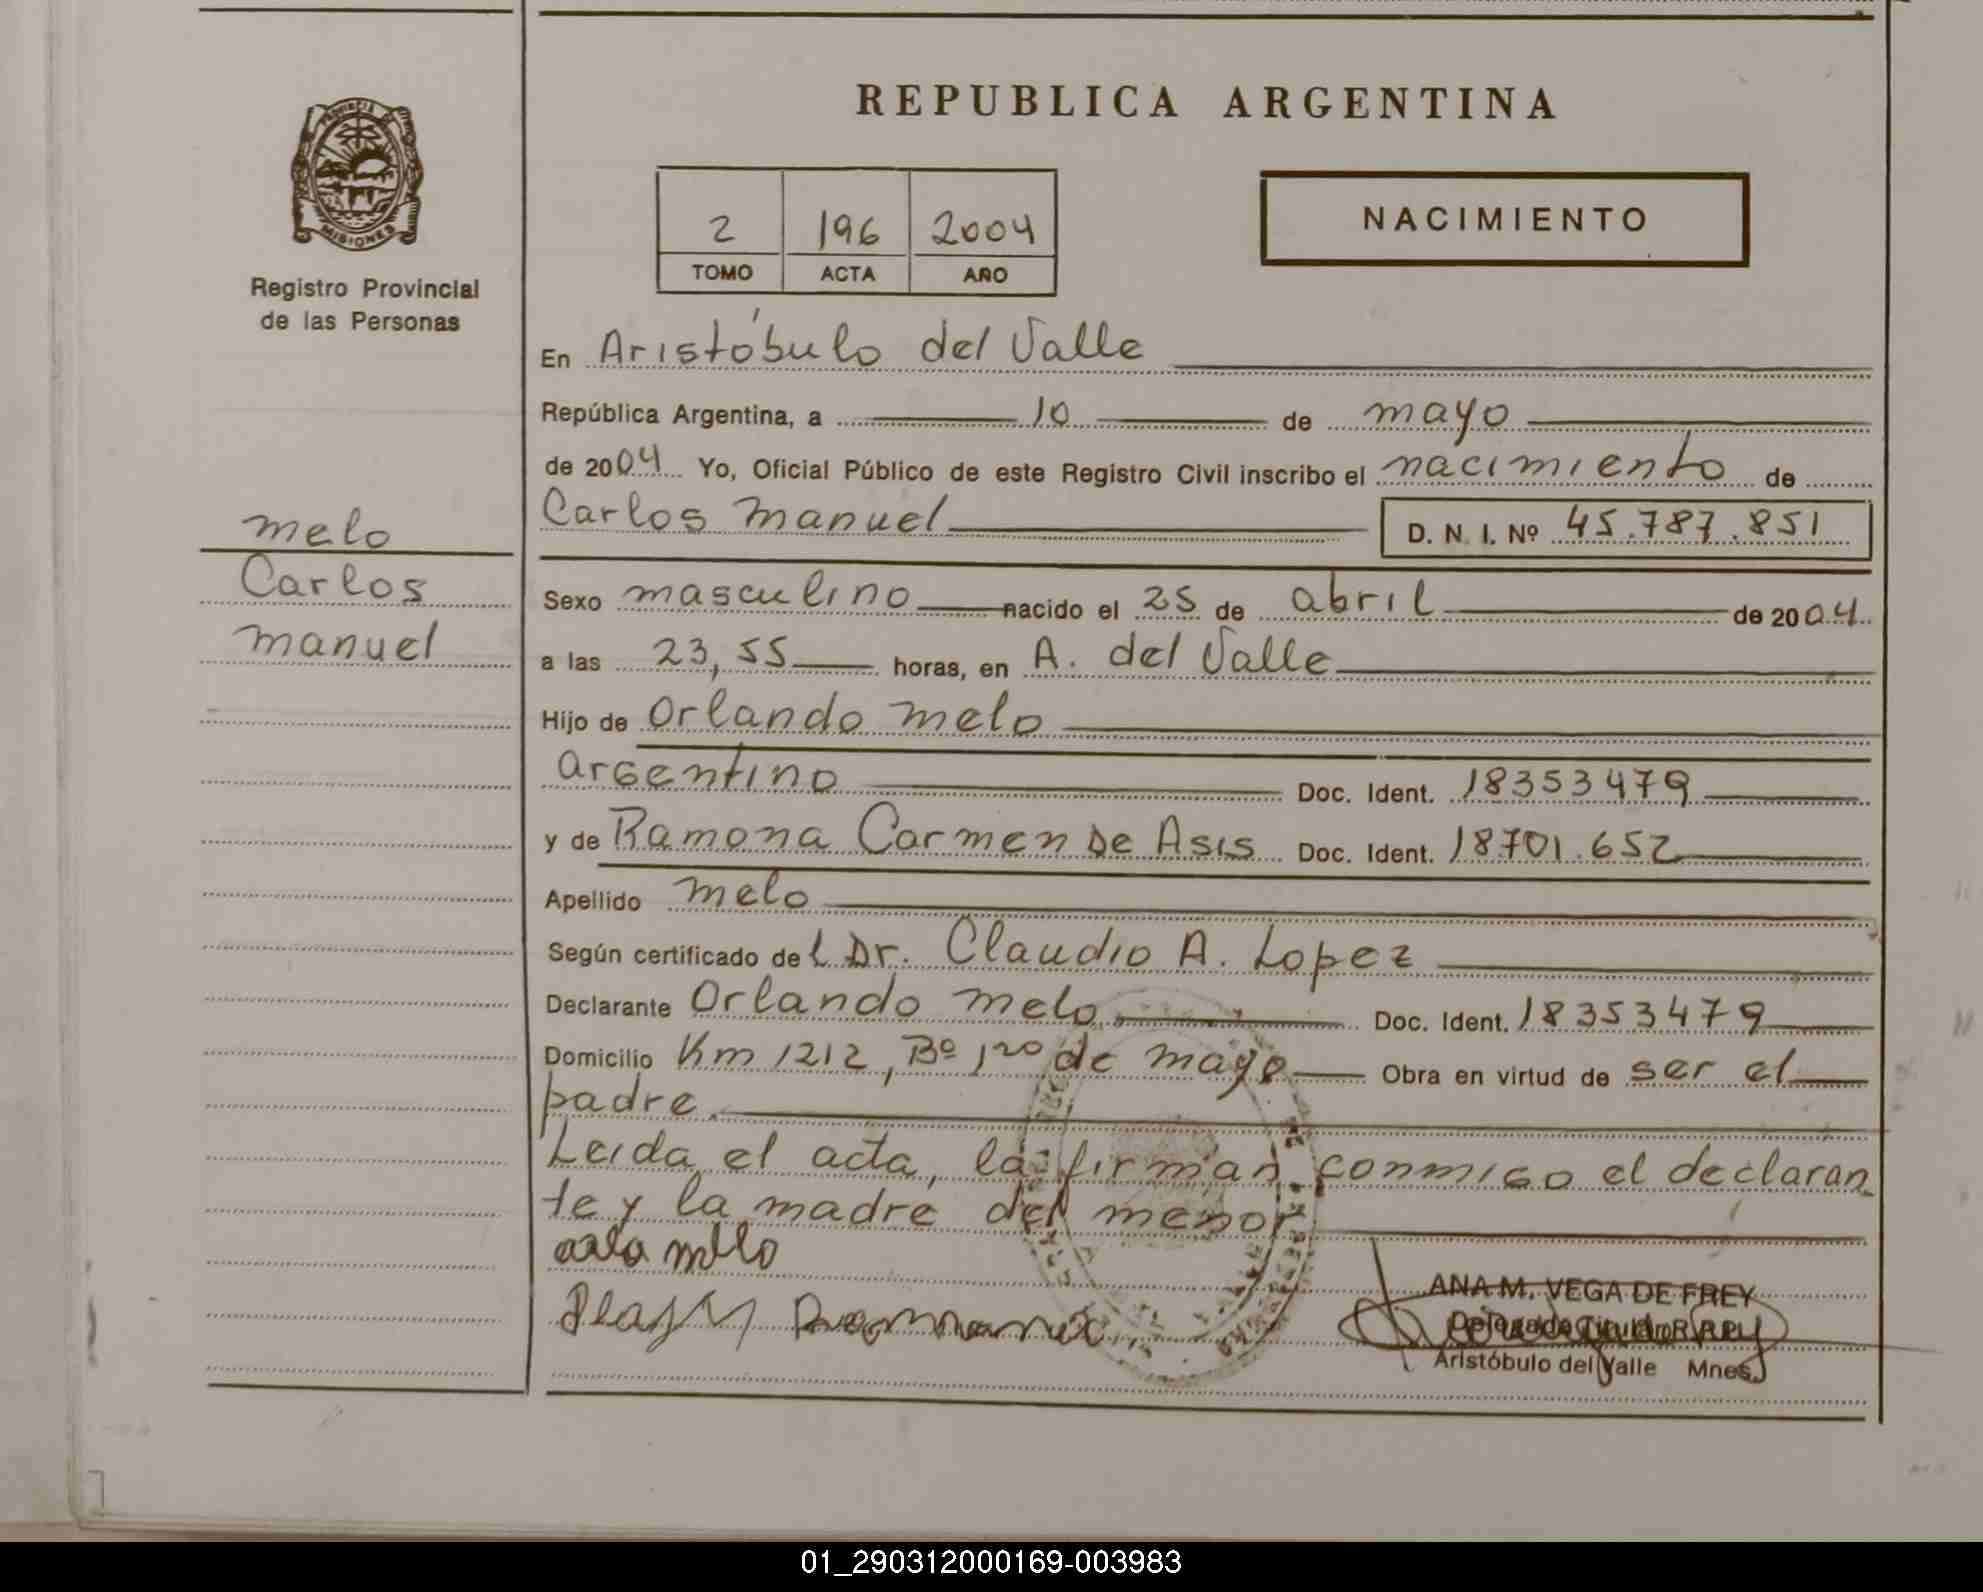 REPUBLICA ARGENTINA
PROVINCIA DE
MISIONES
Registro Provincial
de las Personas
2 196 2004
TOMO ACTA AÑO
NACIMIENTO
En Aristóbulo del Valle
República Argentina, a 10 de mayo
de 2004 Yo, Oficial Público de este Registro Civil inscribo el nacimiento de
Carlos Manuel D. N. I. Nº 45.787.851
melo
Carlos
manuel
Sexo masculino nacido el 25 de abril de 2004
a las 23,55 horas, en A. del Valle
Hijo de Orlando Melo
argentino Doc. Ident. 18353479
y de Ramona Carmen De Asis Doc. Ident. 18701.652
Apellido melo
Según certificado del Dr. Claudio A. Lopez
Declarante Orlando Melo Doc. Ident. 18353479
Domicilio Km 1212, Bº 1ro de mayo Obra en virtud de ser el
padre.
Leida el acta, la firman conmigo el declaran
te y la madre del menor
ANA M. VEGA DE FREY
Aristóbulo del Valle Mnes.
01_290312000169-003983